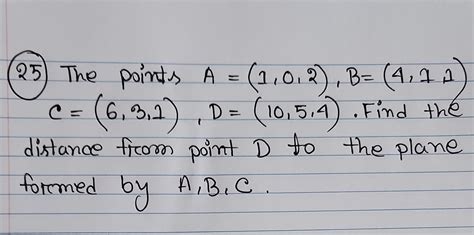 25 The points A = (1,0,2), B= (4,1,1)
C = (6,3,1), D = (10,5,4). Find the
distance from point D to the plane
formed by A,B,C.